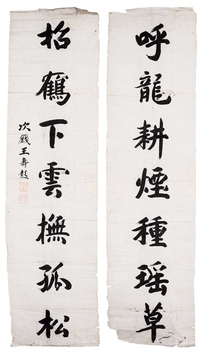 呼龍耕煙種瑶草
招鶴下雲撫孤松
次籛王壽彭